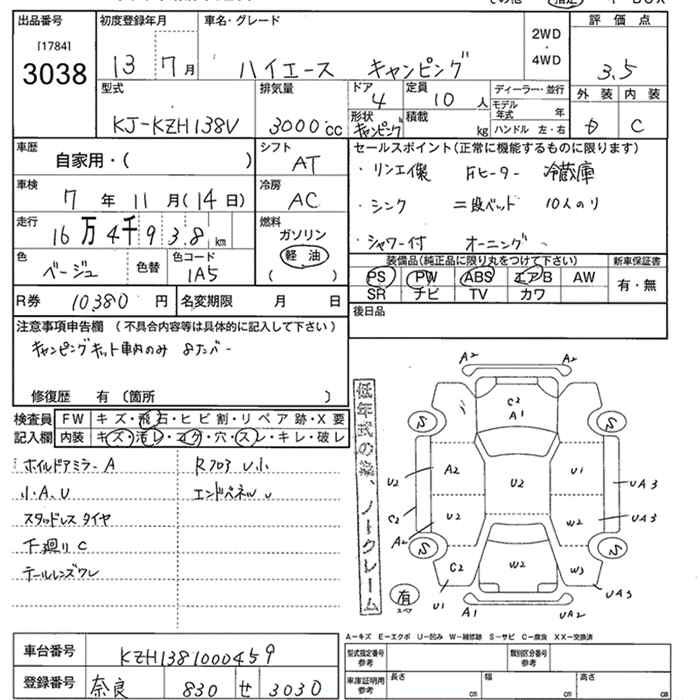 出品番号 初度登録年月 車名・グレード 評価点
[1784]
3038
13 7月 ハイエース キャンピング 2WD・4WD 3.5
外装 内装
D C
型式 排気量 ドア 定員 ディーラー・並行
KJ-KZH138V 3000cc 4 10人 モデル年式 年
形状 キャンピング 積載 kg ハンドル 左・右
車歴 自家用・( ) シフト AT
車検 7年11月(14日) 冷房 AC
走行 16万4千938km 燃料 ガソリン 軽油 ( )
色 ベージュ 色替 色コード 1A5
R券 10380円 名変期限 月 日
セールスポイント(正常に機能するものに限ります)
・リンエイ製 Fヒーター 冷蔵庫
・シンク 二段ベッド 10人のり
・シャワー付 オーニング
装備品(純正品に限り丸をつけて下さい) 新車保証書
PS PW ABS エアB AW 有・無
SR ナビ TV カワ
後日品
注意事項申告欄 (不具合内容等は具体的に記入して下さい)
キャンピングキット車内のみ 8ナンバー
修復歴 有 〔箇所 〕
検査員記入欄
FW キズ・飛石・ヒビ割・リペア跡・X要
内装 キズ・汚レ・コゲ・穴・スレ・キレ・破レ
ホイルドアミラーA Rフロア U小
小A.U エンドパネルU
スタッドレスタイヤ
下廻りC
テールレンズワレ
低年式の為、ノークレーム
A2
C2
A1
S S
A2 U1
U2 U2 UA3
C2 U2 W2 UA3
A2
S S
C2 W2 W3
U1 A1 UA2 UA3
有
スペア
A-キズ E-エクボ U-凹み W-補修跡 S-サビ C-腐食 XX-交換済
車台番号 KZH1381000459
登録番号 奈良 830 せ 3030
型式指定番号 参考 類別区分番号 参考
車庫証明用 参考 長さ cm 幅 cm 高さ cm